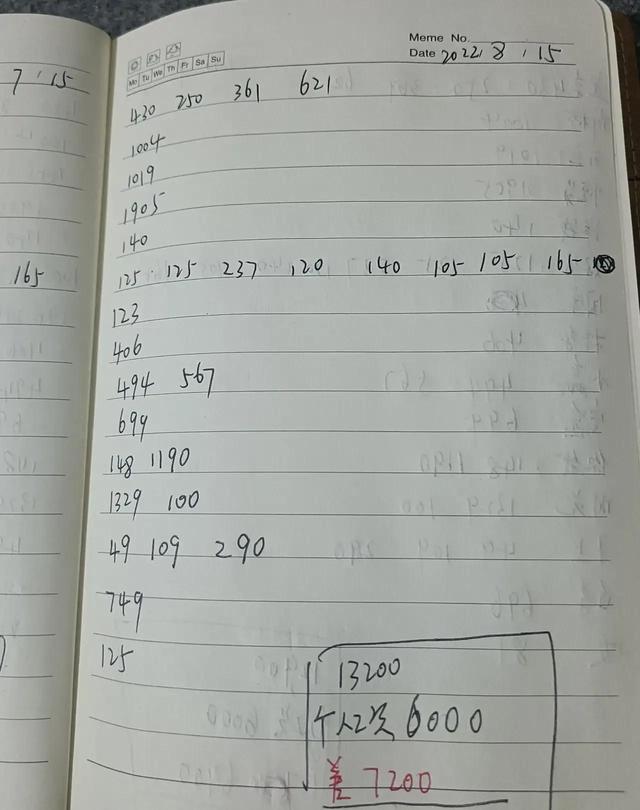 Meme No.
Date 2022 8 15
Mo Tu We Th Fr Sa Su
7 15
430 250 361 621
1004
1019
1905
140
165
125 125 237 120 140 105 105 165
123
406
494 567
699
148 1190
1329 100
49 109 290
749
125
13200
6000
差 7200